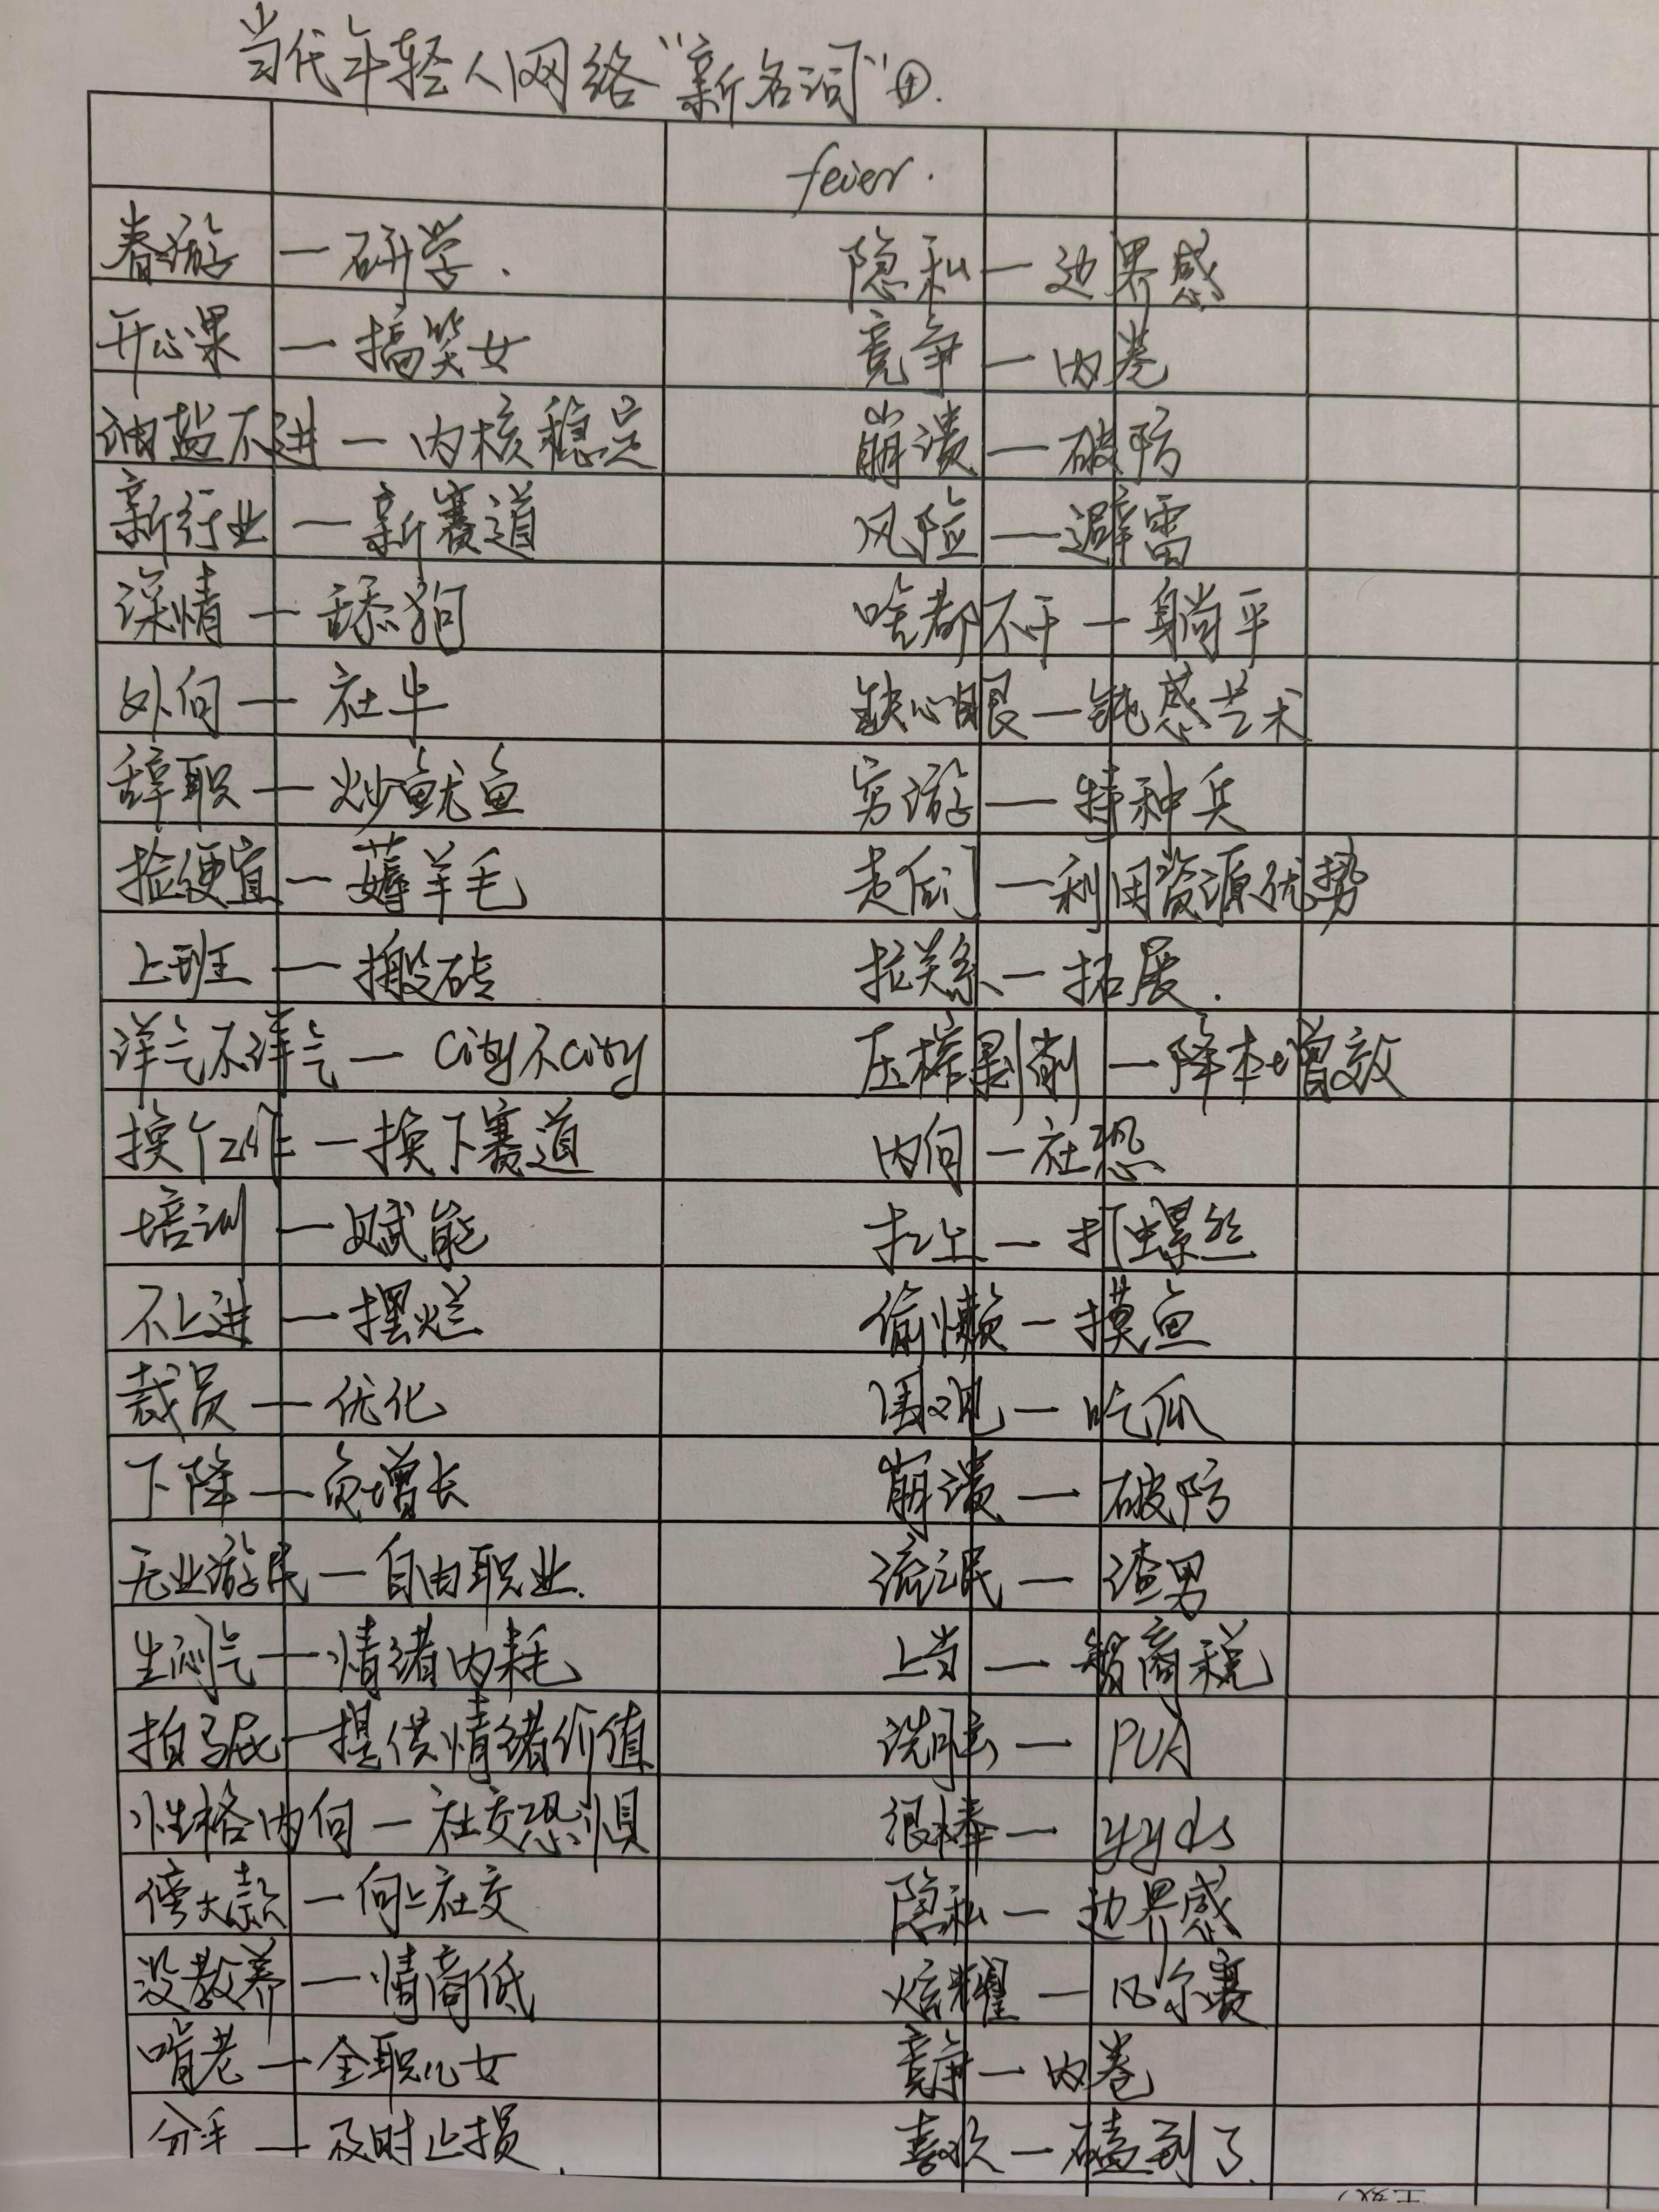 当代年轻人网络“新名词”④.
feier.
春游 — 研学. 隐私 — 边界感
开心果 — 搞笑女 竞争 — 内卷
油盐不进 — 内核稳定 崩溃 — 破防
新行业 — 新赛道 风险 — 避雷
深情 — 舔狗 啥都不干 — 躺平
外向 — 社牛 缺心眼 — 钝感艺术
辞职 — 炒鱿鱼 穷游 — 特种兵
捡便宜 — 薅羊毛 走后门 — 利用资源优势
上班 — 搬砖 拉关系 — 拓展.
洋气不洋气 — city不city 压榨剥削 — 降本增效
换个工作 — 换下赛道 内向 — 社恐
培训 — 赋能 打工 — 打螺丝
不上进 — 摆烂 偷懒 — 摸鱼
裁员 — 优化 围观 — 吃瓜
下降 — 负增长 崩溃 — 破防
无业游民 — 自由职业. 流氓 — 渣男
生闷气 — 情绪内耗 上当 — 智商税
拍马屁 — 提供情绪价值 洗脑 — PUA
性格内向 — 社交恐惧 很棒 — yyds
傍大款 — 向上社交 隐私 — 边界感
没教养 — 情商低 炫耀 — 凡尔赛
啃老 — 全职儿女 竞争 — 内卷
分手 — 及时止损. 喜欢 — 磕到了.